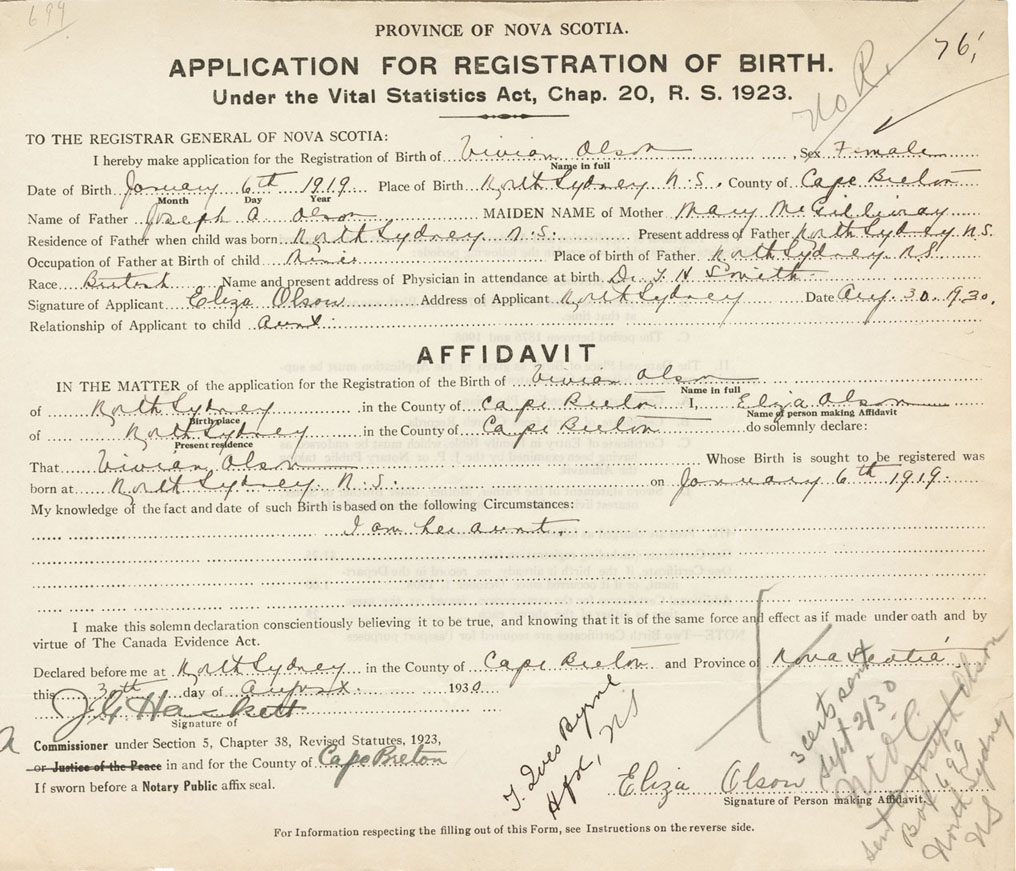 699
PROVINCE OF NOVA SCOTIA.
APPLICATION FOR REGISTRATION OF BIRTH.
Under the Vital Statistics Act, Chap. 20, R. S. 1923.
No R.
76
TO THE REGISTRAR GENERAL OF NOVA SCOTIA:
I hereby make application for the Registration of Birth of Vivian Olson, Sex Female
Name in full
Date of Birth January 6th 1919 Place of Birth North Sydney N.S. County of Cape Breton
Month Day Year
Name of Father Joseph A. Olson MAIDEN NAME of Mother Mary McGillivray
Residence of Father when child was born North Sydney N.S. Present address of Father North Sydney N.S.
Occupation of Father at Birth of child Place of birth of Father North Sydney N.S.
Race British Name and present address of Physician in attendance at birth Dr.
Signature of Applicant Eliza Olson Address of Applicant North Sydney Date Aug. 30. 1930.
Relationship of Applicant to child aunt
AFFIDAVIT
IN THE MATTER of the application for the Registration of the Birth of Vivian Olson
Name in full
of North Sydney in the County of Cape Breton I, Eliza Olson
Birthplace Name of person making Affidavit
of North Sydney in the County of Cape Breton do solemnly declare:
Present residence
That Vivian Olson Whose Birth is sought to be registered was
born at North Sydney N.S. on January 6th 1919.
My knowledge of the fact and date of such Birth is based on the following Circumstances:
I am her aunt.
I make this solemn declaration conscientiously believing it to be true, and knowing that it is of the same force and effect as if made under oath and by
virtue of The Canada Evidence Act.
Declared before me at North Sydney in the County of Cape Breton and Province of Nova Scotia
this 30th day of August 1930
J G Hackett
Signature of
A Commissioner under Section 5, Chapter 38, Revised Statutes, 1923,
or Justice of the Peace in and for the County of Cape Breton
If sworn before a Notary Public affix seal.
Byrne
Hfx, NS
Eliza Olson
Signature of Person making Affidavit
3 certs sent
Sept 2/30
sent Joseph Olson
Box 699
North Sydney
NS
For Information respecting the filling out of this Form, see Instructions on the reverse side.